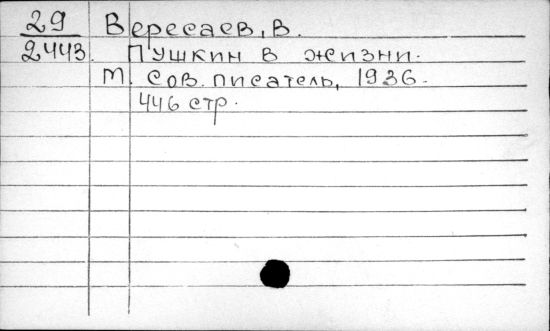 29 Вересаев, В.
2443. Пушкин в жизни.
М. Сов. писатель, 1936.
446 стр.